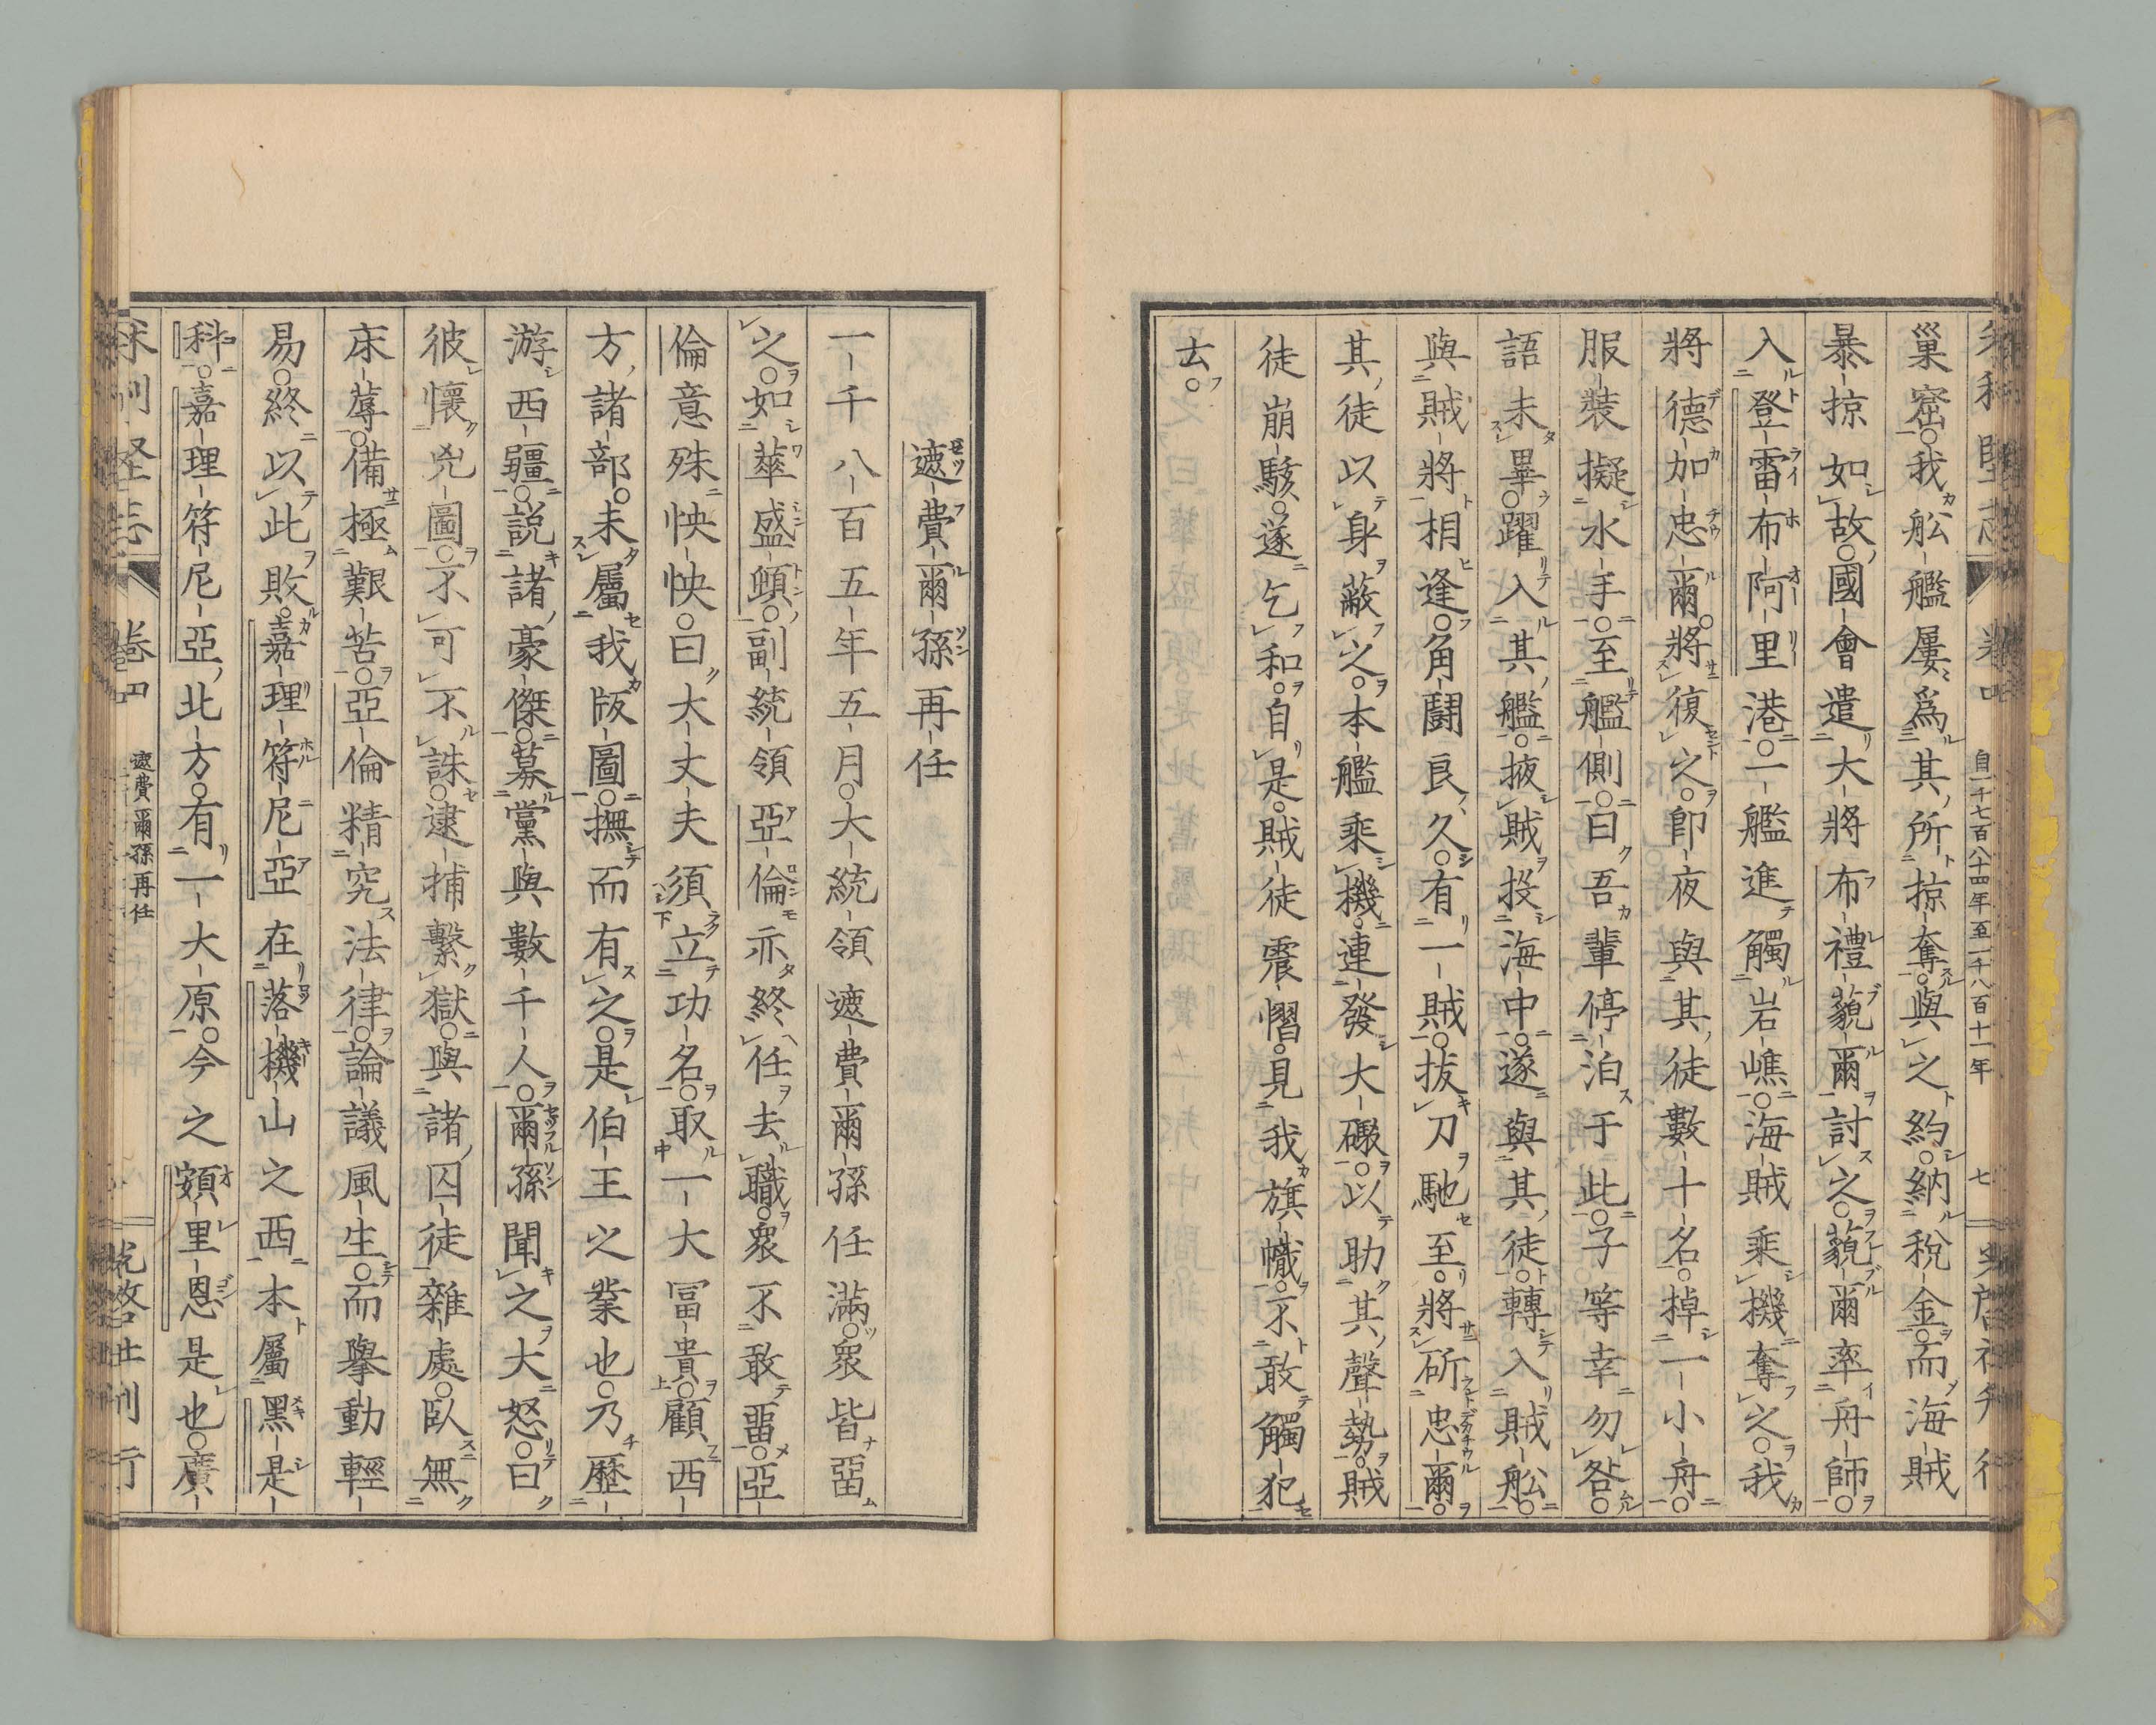 巢窟。我舩艦屢爲其所掠奪。與之約。納稅金。而海賊
暴掠如故。國會遣大將布禮藐爾討之。藐爾率舟師。
入登雷布阿里港。一艦進觸岩嶕。海賊乘機奪之。我
將德加忠爾。將復之。卽夜與其徒數十名。掉一小舟。
服裝擬水手。至艦側。曰吾輩停泊于此。子等幸勿咎。
語未畢。躍入其艦。掖賊投海中。遂與其徒。轉入賊舩。
與賊將相逢。角鬪良久。有一賊。拔刀馳至。將斫忠爾。
其徒以身蔽之。本艦乘機。連發大礟。以助其聲勢。賊
徒崩駭。遂乞和。自是賊徒震慴。見我旗幟。不敢觸犯
去。
自一千七百八十四年至一千八百十一年
七
遮費爾孫再任
一千八百五年五月。大統領遮費爾孫任滿。衆皆畱
之。如華盛頓。副統領亞倫亦終任去職。衆不敢畱。亞
倫意殊怏怏。曰大丈夫須立功名。取一大冨貴。顧西
方諸部。未屬我版圖。撫而有之。是伯王之業也。乃歷
游西疆。說諸豪傑。募黨與數千人。爾孫聞之大怒。曰
彼懷兇圖。不可不誅。逮捕繫獄。與諸囚徒雜處。臥無
床蓐。備極艱苦。亞倫精究法律。論議風生。而擧動輕
易。終以此敗。嘉理符尼亞在落機山之西。本屬墨是
科。嘉理符尼亞北方。有一大原。今之頞里恩是也。廣
卷四
遮費爾孫再任